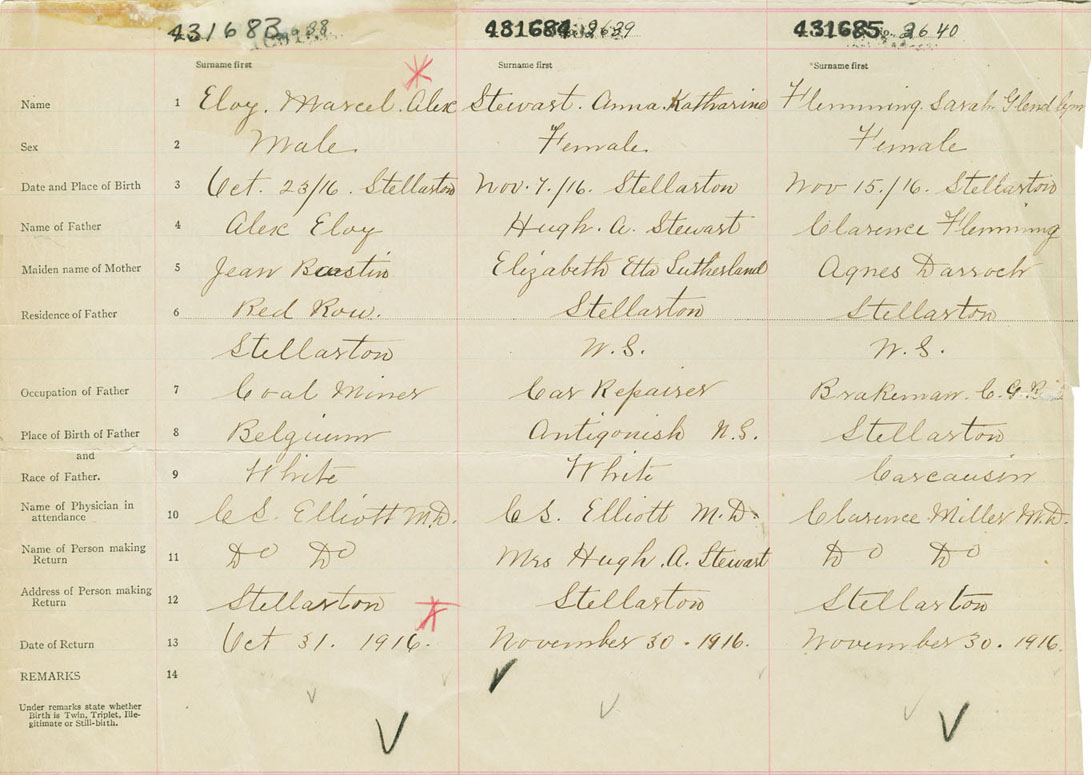 431683 2638 431684 2639 431685 2640
Surname first Surname first Surname first
Name 1 Eloy. Marcel. Alex Stewart. Anna. Katharine Flemming. Sarah
Sex 2 Male. Female. Female
Date and Place of Birth 3 Oct. 23/16. Stellarton Nov. 7./16. Stellarton Nov 15./16. Stellarton
Name of Father 4 Alex Eloy Hugh. A. Stewart Clarence Flemming
Maiden name of Mother 5 Jean Elizabeth Etta Sutherland Agnes Darroch
Residence of Father 6 Red Row. Stellarton Stellarton
Stellarton N.S. N.S.
Occupation of Father 7 Coal Miner Car Repairer Brakeman. C. G. R.
Place of Birth of Father 8 Belguium Antigonish N.S. Stellarton
and
Race of Father. 9 White White Carcausin
Name of Physician in
attendance 10 CS. Elliott M.D. CS. Elliott M.D. Clarence Miller M.D.
Name of Person making
Return 11 Do Do Mrs Hugh. A. Stewart Do Do
Address of Person making
Return 12 Stellarton Stellarton Stellarton
Date of Return 13 Oct 31. 1916. November 30. 1916. November 30. 1916.
REMARKS 14
Under remarks state whether
Birth is Twin, Triplet, Ille-
gitimate or Still-birth.